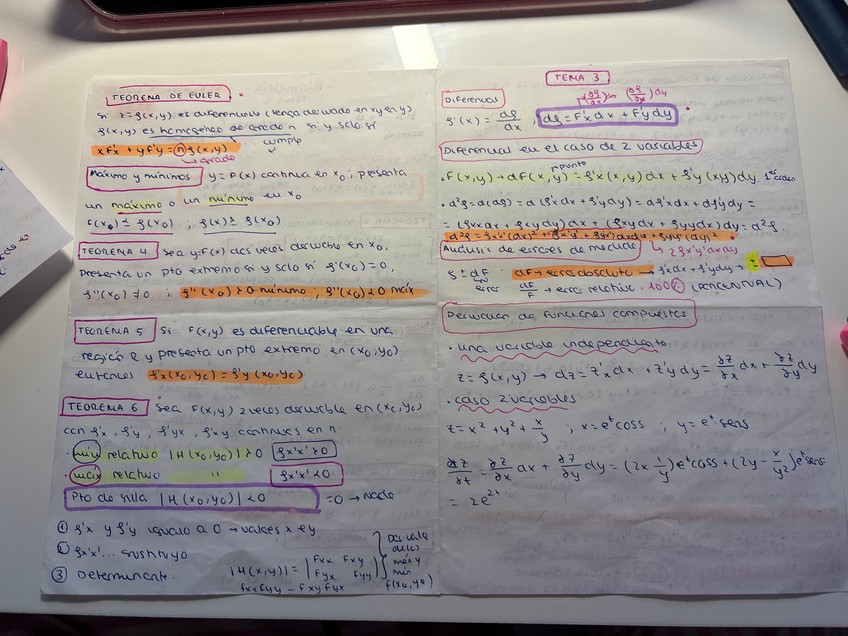 TEOREMA DE EULER
Si z=f(x,y) es diferenciable (tenga derivada en x y en y)
f(x,y) es homogénea de grado n si y solo si
xF'x + yF'y = n f(x,y) cumple
grado
Máximo y mínimos y=F(x) continua en x₀, presenta
un máximo o un mínimo en x₀
F(x₀) ≤ f(x₀) ; f(x) ≥ f(x₀)
TEOREMA 4 Sea y=F(x) dos veces derivable en x₀,
presenta un pto extremo si y solo si f'(x₀)=0,
f''(x₀)≠0 ; f''(x₀)>0 mínimo, f''(x₀)<0 máx
TEOREMA 5 Si F(x,y) es diferenciable en una
región R y presenta un pto extremo en (x₀,y₀)
entonces f'x(x₀,y₀)=f'y(x₀,y₀)
TEOREMA 6 Sea F(x,y) 2 veces derivable en (x₀,y₀)
con f'x, f'y, f'yx, f'xy continuas en n
· mín relativo |H(x₀,y₀)|>0 fx'x'>0
· máx relativo " fx'x'<0
Pto de silla |H(x₀,y₀)|<0 =0→Nada
① f'x y f'y igualo a 0 → valores x e y
② fx'x'... sustituyo
③ Determinante |H(x,y)| = |Fxx Fxy
Fyx Fyy|
fxxfyy - fxyfyx
máx y
mín
F(x₀,y₀)
TEMA 3
Diferencial (∂f/∂x)dx (∂f/∂y)dy
f'(x) = df/dx, df = F'x dx + F'y dy
Diferencial en el caso de 2 variables
punto
· F(x,y) → dF(x,y) = f'x(x,y)dx + f'y(xy)dy 1er orden
· d²f = d(df) = d(f'x dx + f'y dy) = df'x dx + df'y dy =
= (fxx dx + fxy dy)dx + (fxy dx + fyy dx)dy = d²f
Análisis de errores de medida
f ± dF dF → error absoluto → f'x dx + f'y dy
error dF/F → error relativo · 100% (PORCENTUAL)
Derivación de funciones compuestas
· una variable independiente
z=f(x,y) → dz = z'x dx + z'y dy = ∂z/∂x dx + ∂z/∂y dy
· caso 2 variables
z = x² + y² + x/y ; x = eᵗ cos s ; y = eᵗ · sen s
∂z/∂t = ∂z/∂x dx + ∂z/∂y dy = (2x 1/y)eᵗ cos s + (2y - x/y²)eᵗ sen s =
= 2e²ᵗ